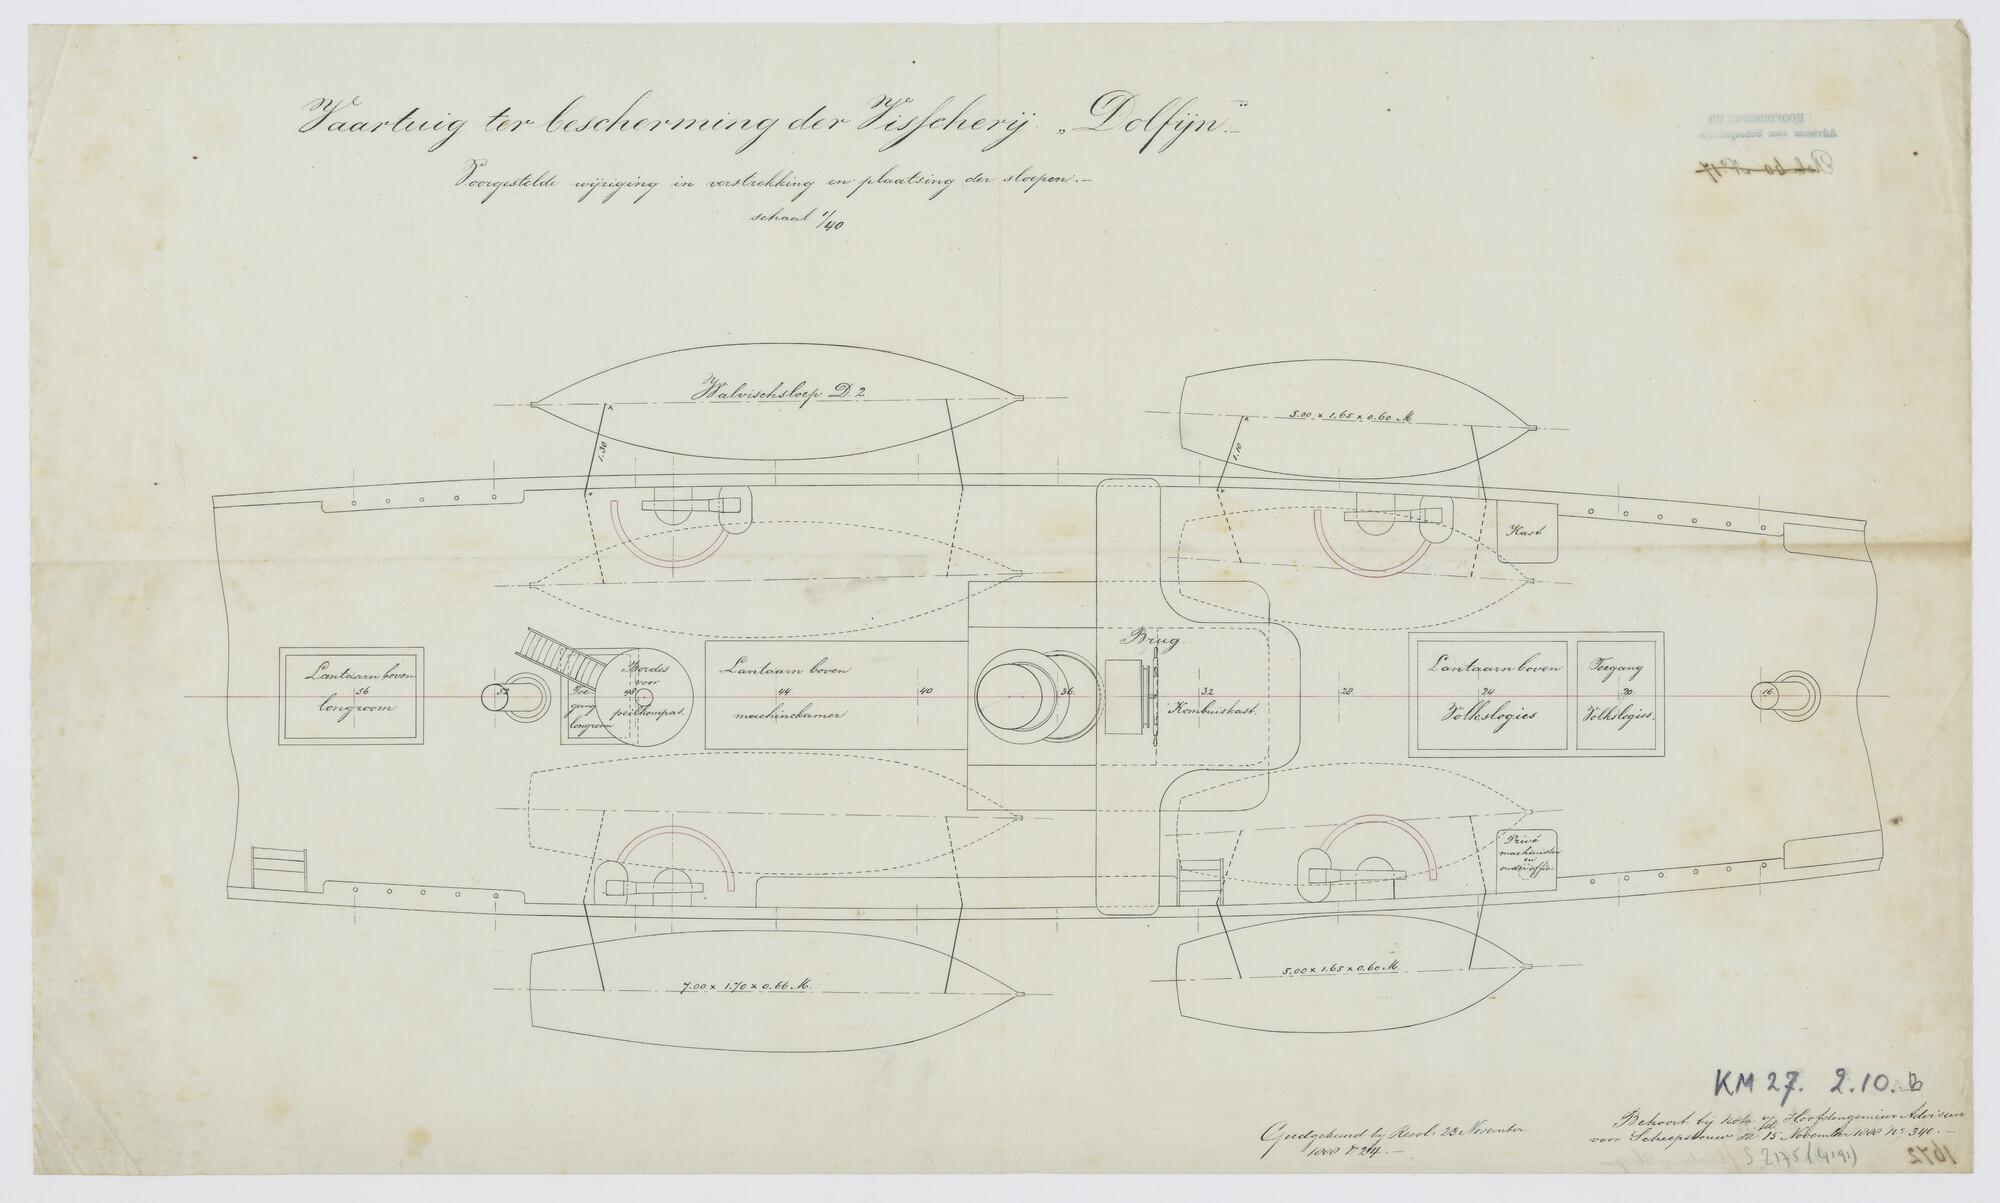 Vaartuig ter bescherming der Visscherij „Dolfijn".—
Voorgestelde wijziging in verstrekking en plaatsing der sloepen.—
schaal 1/40
HOOFDINGENIEUR
Adviseur voor Scheepsbouw
No 17
Walvischsloep D. 2
5.00 x 1.65 x 0.60 M.
1.30
1.10
Kast
Brug
Lantaarn boven
56
longroom
52
Toe-
gang
longroom
Bordes
voor
48
peilkompas.
Lantaarn boven
44
machinekamer
40
36
32
Kombuiskast.
28
Lantaarn boven
24
Volkslogies
Toegang
20
Volkslogies.
16
Privé
machinisten
en
onderoffic.
7.00 x 1.70 x 0.66 M.
5.00 x 1.65 x 0.60 M.
KM 27. 2.10. B
Goedgekeurd bij Resol: 23 November
1888 Γ 24.—
Behoort bij Nota v/d Hoofdingenieur Adviseur
voor Scheepsbouw dd 15 November 1888 No 340.—
S 2175 (4191)
1672